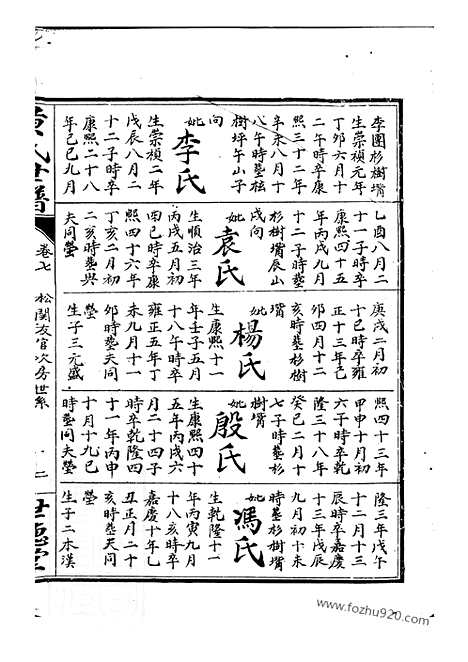 李園杉樹壻
生崇禎元年
丁卯六月十
二午時卒康
熙三十二年
辛未八月十
八午時塟柘
樹坪午山子
向
妣李氏
生崇禎二年
戊辰八月二
十二子時卒
康熙二十八
年己巳九月
乙酉八月二
十一子時卒
康熙四十五
年丙戌九月
十二子時塟
杉樹壻辰山
戌向
妣袁氏
生順治三年
丙戌五月初
四巳時卒康
熙四十六年
丁亥二月初
二亥時塟與
夫同塋
庚戌二月初
十巳時卒雍
正十三年己
卯四月十二
亥時塟杉樹
壻
妣楊氏
生康熙十一
年壬子五月
十八午時卒
雍正五年丁
未九月十一
卯時塟夫同
塋
生子三元盛
熙四十三年
甲申十月初
六子時卒乾
隆三十八年
癸巳二月十
七子時塟杉
樹壻
妣殷氏
生康熙四十
五年丙戌六
月二十四子
時卒乾隆四
十一年丙申
十月十九巳
時塟同夫塋
隆三年戊午
十二月十三
辰時卒嘉慶
十三年戊辰
九月初十未
時塟杉樹壻
妣馮氏
生乾隆十一
年丙寅九月
十八亥時卒
嘉慶十年乙
丑正月二十
亥時塟夫同
塋
生子二本漢
氏世譜
卷七
松関友官次房世系
世德堂
www.fozhu920.com